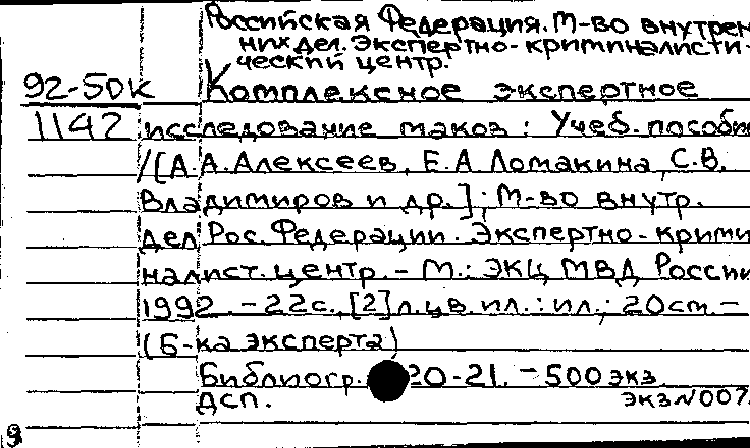 Российская Федерация. М-во внутрен
них дел. Экспертно-криминалисти-
ческий центр.
92-50К
Комплексное экспертное
1142 исследование маков : Учеб. пособие
/[А.А.Алексеев, Е.А.Ломакина, С.В.
Владимиров и др.]; М-во внутр.
дел Рос. Федерации. Экспертно-крими
налист. центр. - М.: ЭКЦ МВД России
1992. - 22с., [2]л.цв. ил. : ил.; 20см. -
(Б-ка эксперта)
Библиогр. 20-21. - 500экз.
ДСП. экз N007
9